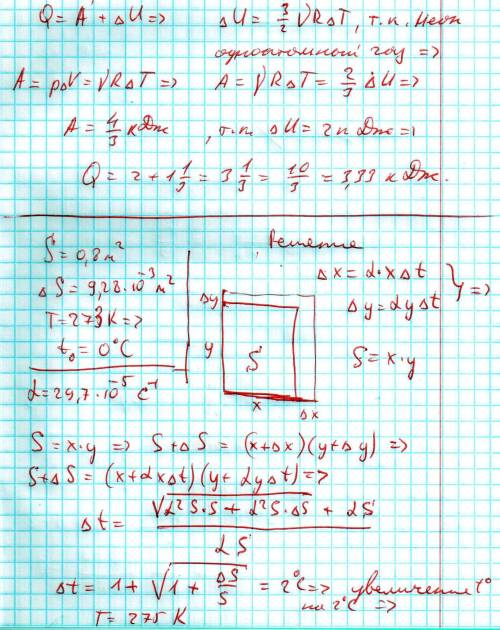 Q = A + ΔU => ΔU = 3/2 νRΔT, т.к. Неон
одноатомный газ =>
A = pΔV = νRΔT => A = νRΔT = 2/3 ΔU =>
A = 4/3 кДж, т.к. ΔU = 2 кДж =>
Q = 2 + 1 1/3 = 3 1/3 = 10/3 = 3,33 кДж.
Решение
S = 0,8 м²
ΔS = 9,28·10⁻³ м²
T = 273 K =>
t₀ = 0°C
α = 29,7·10⁻⁵ C⁻¹
Δy
y
S
x
Δx
Δx = α·xΔt
Δy = αyΔt } =>
S = x·y
S = x·y => S+ΔS = (x+Δx)(y+Δy) =>
S+ΔS = (x+αxΔt)(y+αyΔt) =>
Δt = (√(α²S·S + α²S·ΔS) + αS) / αS
Δt = 1 + √(1 + ΔS/S) = 2°C => увеличение t°
на 2°C =>
T = 275 K